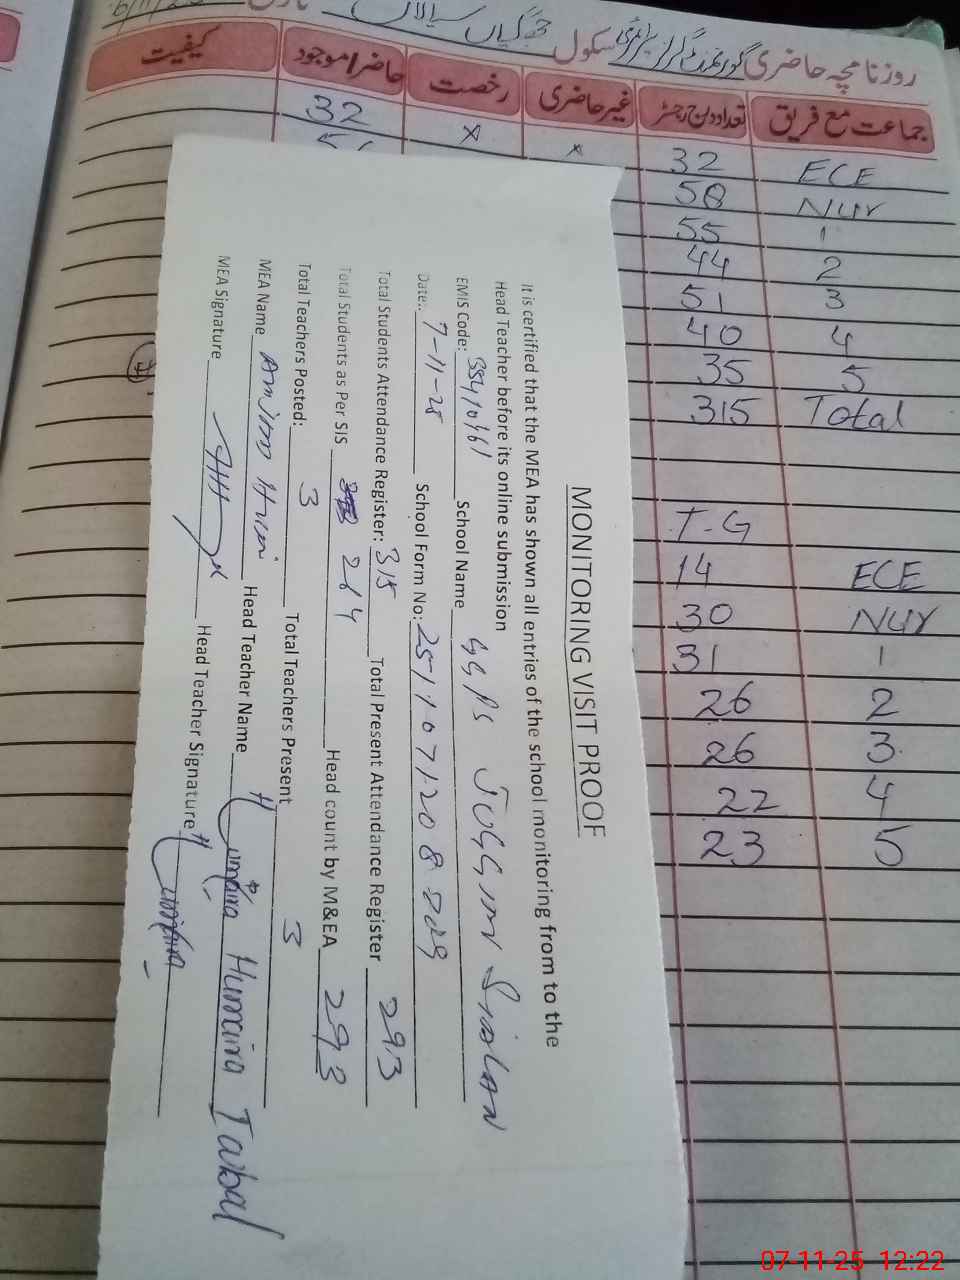 روزنامچہ حاضری گورنمنٹ گرلز پرائمری سکول جگیاں سیالاں
جماعت مع فریق تعداد درج رجسٹر غیر حاضری رخصت حاضر / موجود کیفیت
ECE 32 × × 32
Nur 58
1 55
2 44
3 51
4 40
5 35
Total 315
T.G
ECE 14
Nur 30
1 31
2 26
3 26
4 22
5 23
MONITORING VISIT PROOF
It is certified that the MEA has shown all entries of the school monitoring from to the
Head Teacher before its online submission
EMIS Code: School Name GGPS JUGGIAN SIALAN
Date:. 7-11-25 School Form No:
Total Students Attendance Register: 315 Total Present Attendance Register 293
Total Students as Per SIS 264 Head count by M&EA 293
Total Teachers Posted: 3 Total Teachers Present 3
MEA Name Head Teacher Name Humaira
MEA Signature Head Teacher Signature Humaira
07-11-25 12:22